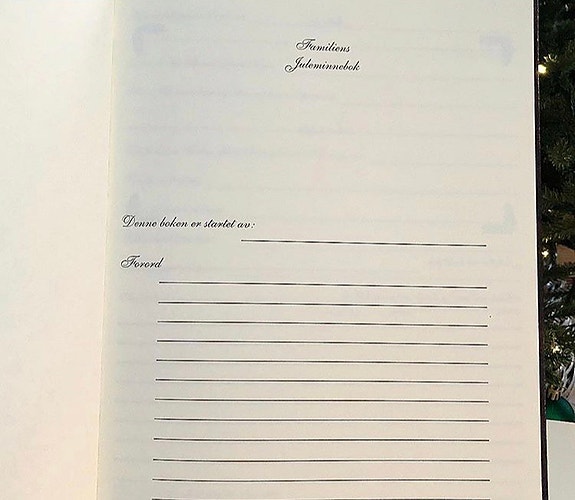 Familiens
Juleminnebok
Denne boken er startet av:
Forord